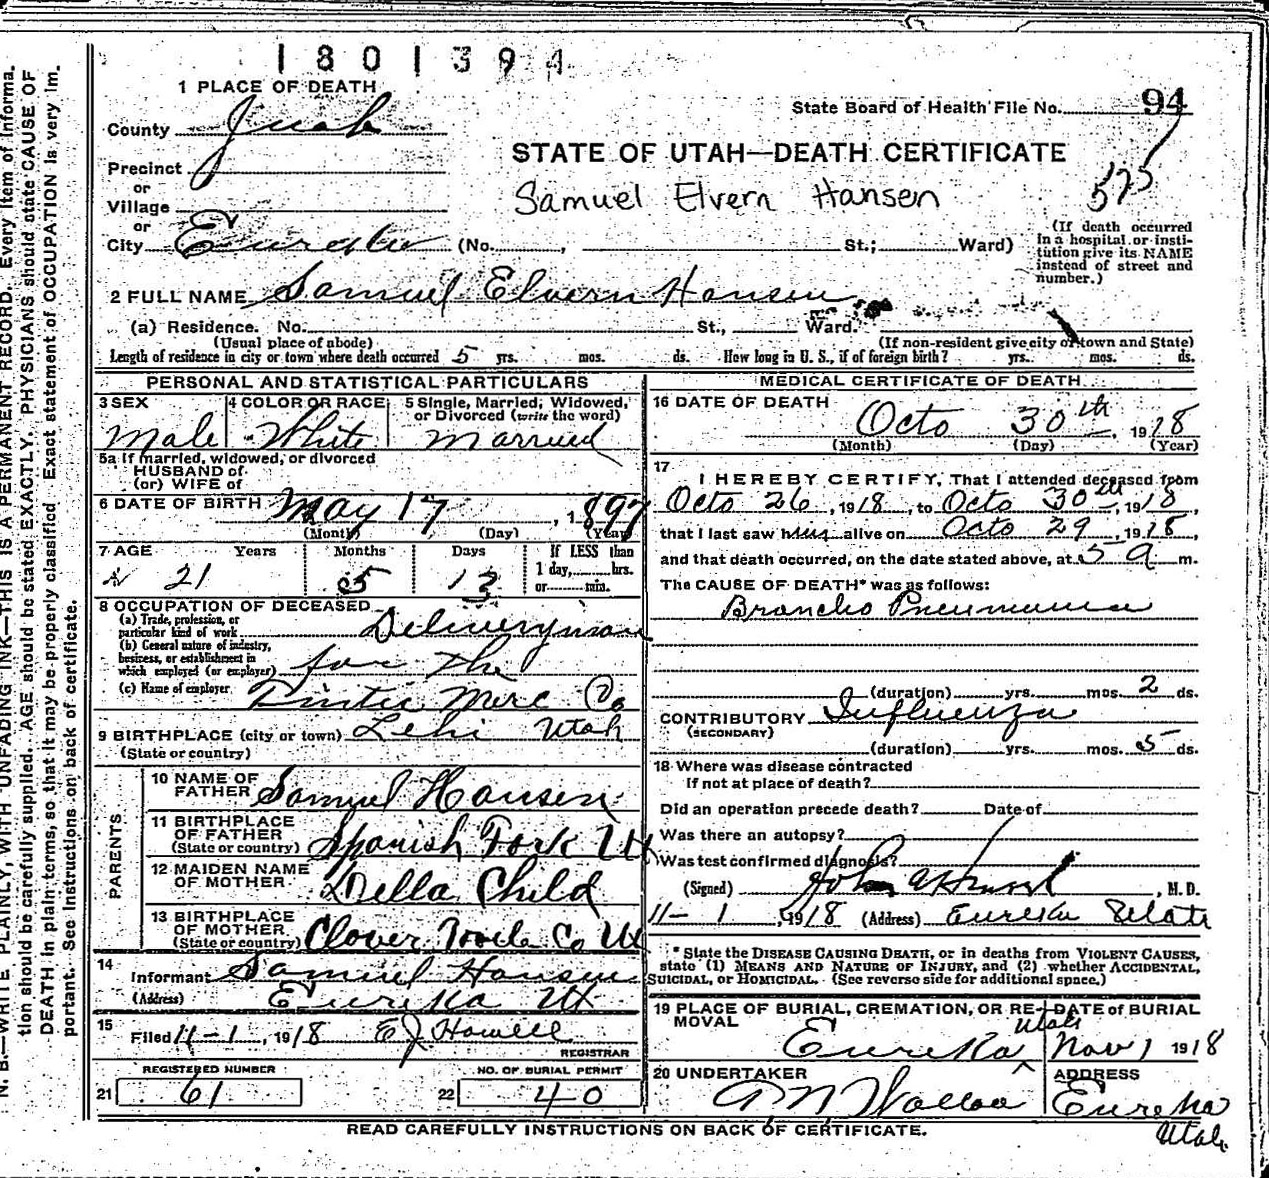 1801394
1 PLACE OF DEATH
State Board of Health File No. 94
County Juab
STATE OF UTAH—DEATH CERTIFICATE
575
Precinct
or
Village
Samuel Elvern Hansen
or
City Eureka (No. , St.; Ward)
(If death occurred
in a hospital or insti-
tution give its NAME
instead of street and
number.)
2 FULL NAME Samuel Elvern Hansen
(a) Residence. No. St., Ward.
(Usual place of abode)
(If non-resident give city or town and State)
Length of residence in city or town where death occurred 5 yrs. mos. ds. How long in U. S., if of foreign birth? yrs. mos. ds.
PERSONAL AND STATISTICAL PARTICULARS
3 SEX
Male
4 COLOR OR RACE
White
5 Single, Married, Widowed,
or Divorced (write the word)
Married
5a If married, widowed, or divorced
HUSBAND of
(or) WIFE of
6 DATE OF BIRTH May 17, 1897
(Month) (Day) (Year)
7 AGE Years Months Days If LESS than
1 day, hrs.
or min.
21 5 13
8 OCCUPATION OF DECEASED
(a) Trade, profession, or
particular kind of work Deliveryman
(b) General nature of industry,
business, or establishment in
which employed (or employer) for the
(c) Name of employer Tintic Merc Co
9 BIRTHPLACE (city or town) Lehi Utah
(State or country)
PARENTS
10 NAME OF
FATHER Samuel Hansen
11 BIRTHPLACE
OF FATHER
(State or country) Spanish Fork Ut
12 MAIDEN NAME
OF MOTHER Della Child
13 BIRTHPLACE
OF MOTHER
(State or country) Clover Tooele Co Ut
14
Informant Samuel Hansen
(Address) Eureka Ut
15
Filed 11-1, 1918 E J Howell
REGISTRAR
REGISTERED NUMBER
21 61
NO. OF BURIAL PERMIT
22 40
MEDICAL CERTIFICATE OF DEATH
16 DATE OF DEATH
Octo 30th, 1918
(Month) (Day) (Year)
17
I HEREBY CERTIFY, That I attended deceased from
Octo 26, 1918, to Octo 30th, 1918,
that I last saw him alive on Octo 29, 1918,
and that death occurred, on the date stated above, at 5 a m.
The CAUSE OF DEATH* was as follows:
Broncho Pneumonia
(duration) yrs. mos. 2 ds.
CONTRIBUTORY Influenza
(SECONDARY)
(duration) yrs. mos. 5 ds.
18 Where was disease contracted
If not at place of death?
Did an operation precede death? Date of
Was there an autopsy?
Was test confirmed diagnosis?
(Signed) John , M. D.
11-1, 1918 (Address) Eureka Utah
* State the DISEASE CAUSING DEATH, or in deaths from VIOLENT CAUSES,
state (1) MEANS AND NATURE OF INJURY, and (2) whether ACCIDENTAL,
SUICIDAL, or HOMICIDAL. (See reverse side for additional space.)
19 PLACE OF BURIAL, CREMATION, OR RE-
MOVAL
Eureka Utah
DATE of BURIAL
Nov 1 1918
20 UNDERTAKER
ADDRESS
Eureka
Utah
READ CAREFULLY INSTRUCTIONS ON BACK OF CERTIFICATE.
N. B.—WRITE PLAINLY, WITH UNFADING INK—THIS IS A PERMANENT RECORD. Every item of informa-
tion should be carefully supplied. AGE should be stated EXACTLY. PHYSICIANS should state CAUSE OF
DEATH in plain terms, so that it may be properly classified. Exact statement of OCCUPATION is very im-
portant. See Instructions on back of certificate.